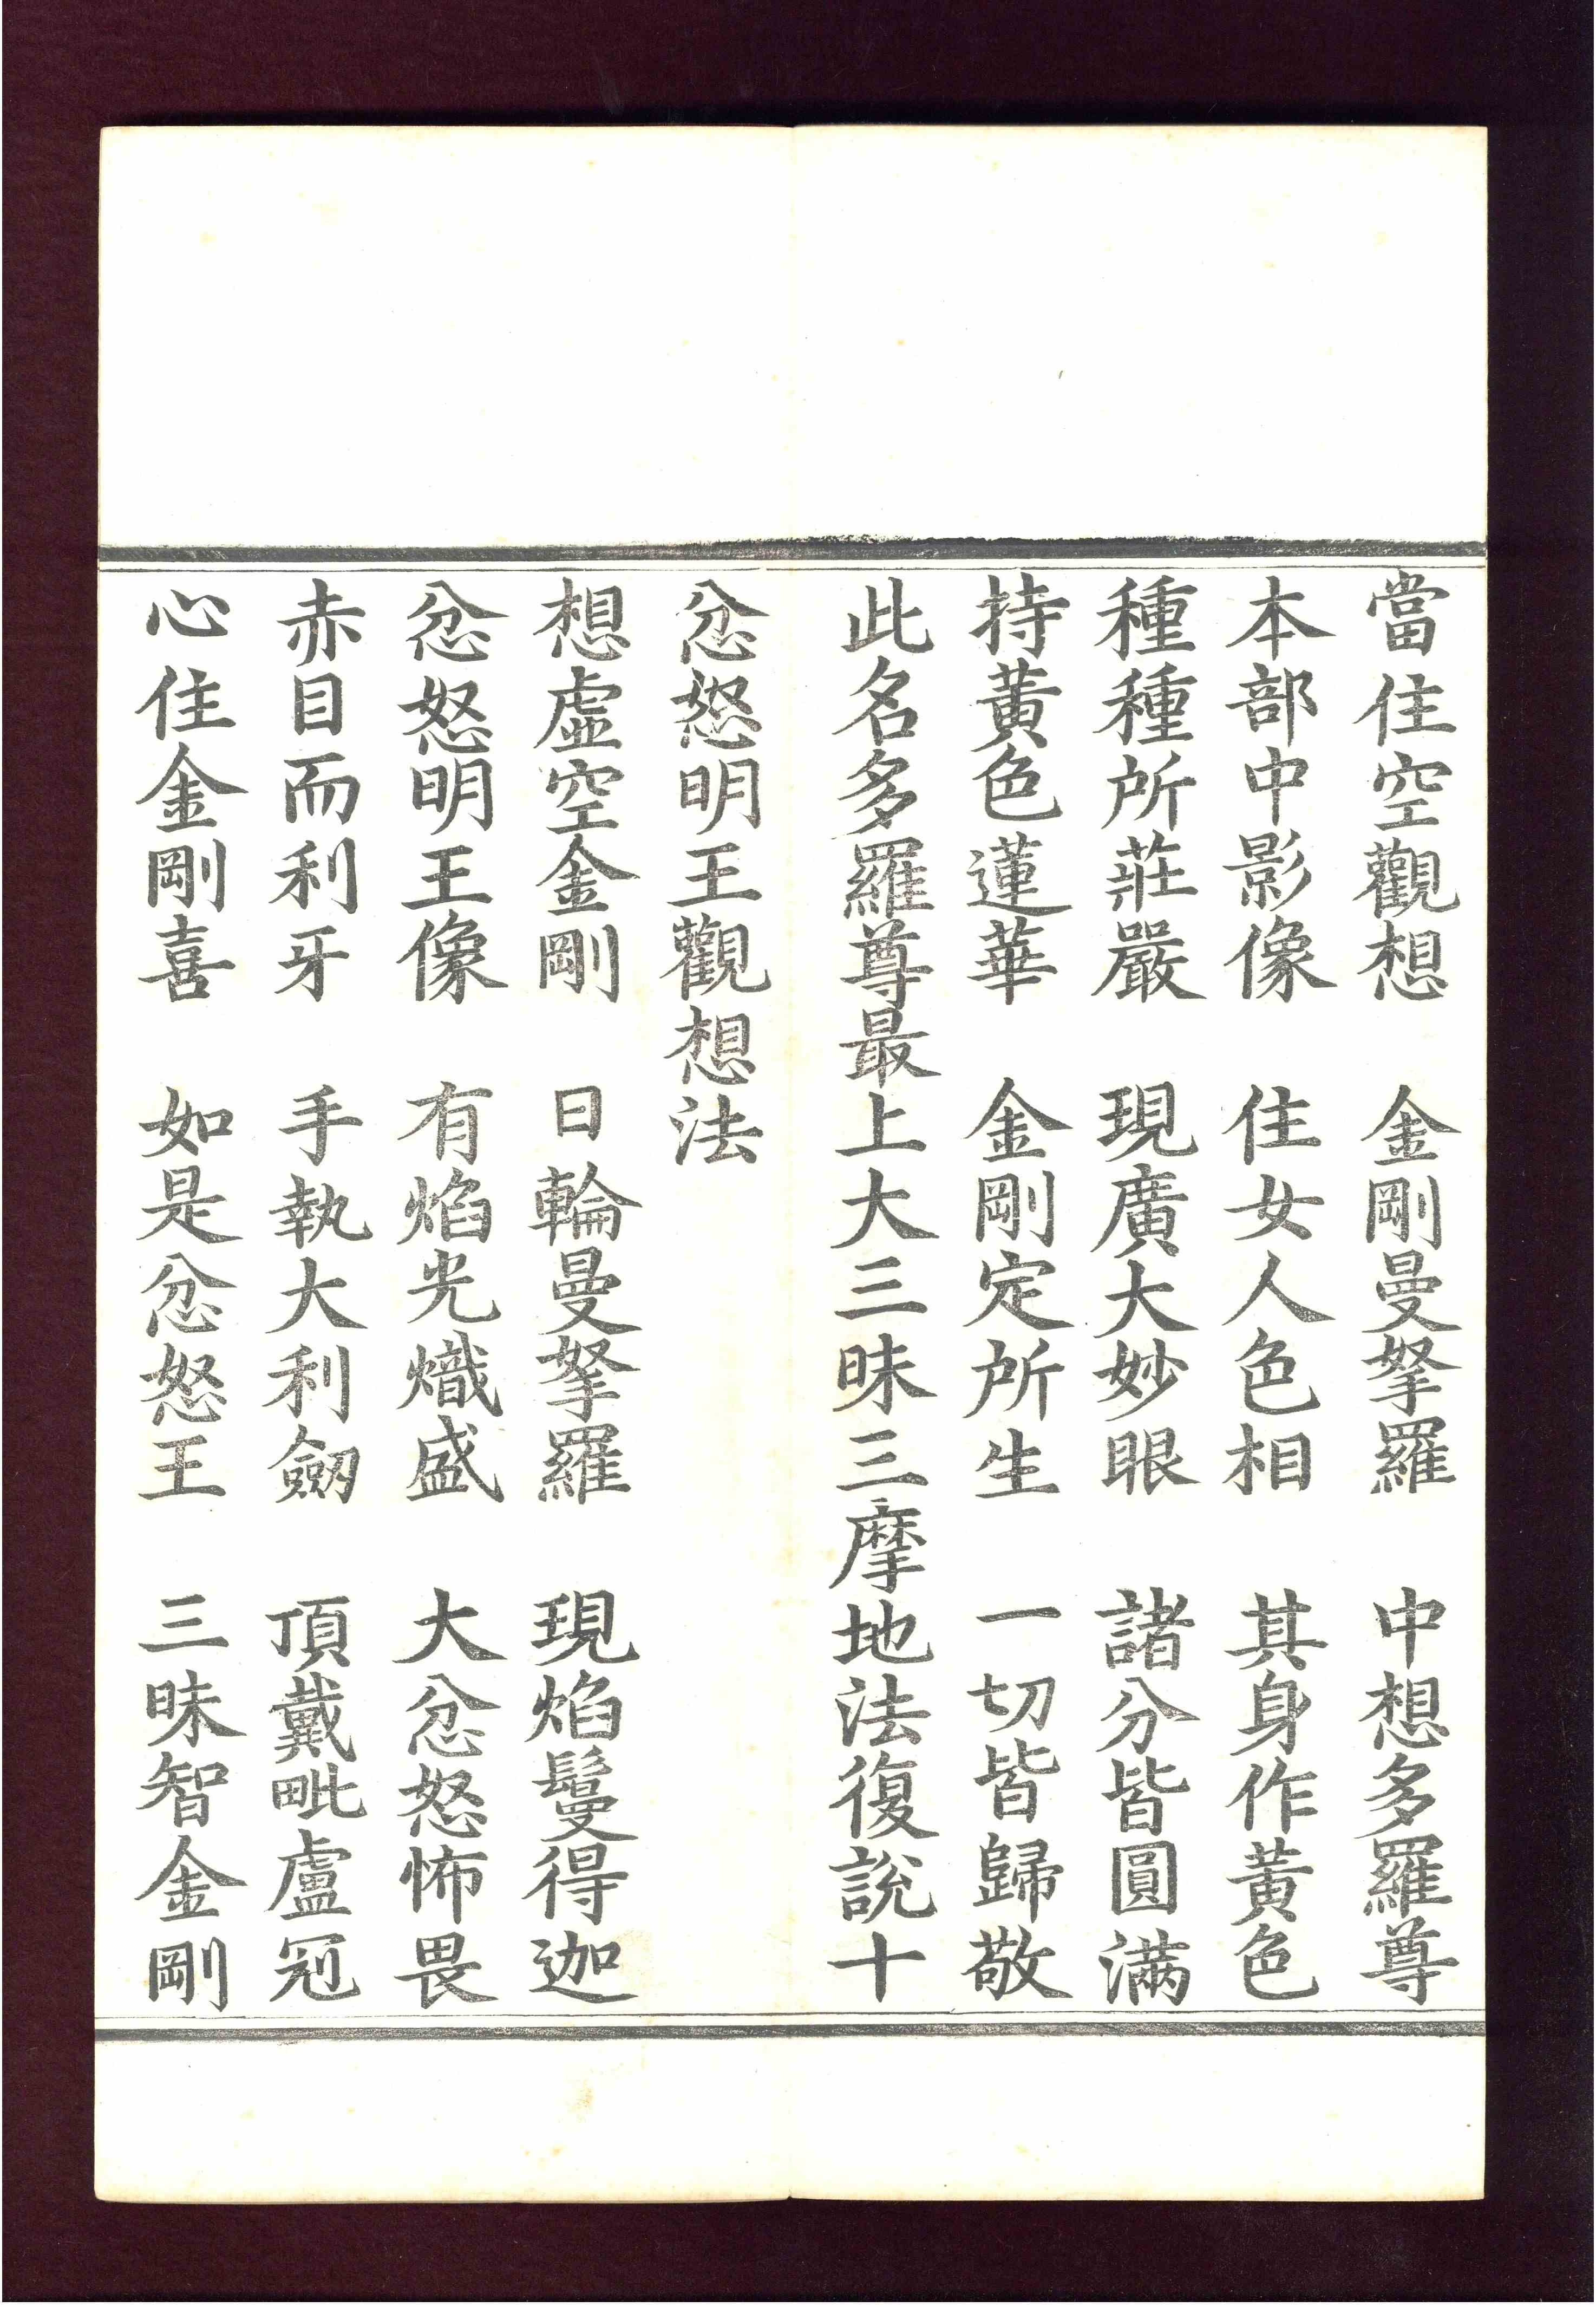 當住空觀想　金剛曼拏羅　中想多羅尊
本部中影像　住女人色相　其身作黃色
種種所莊嚴　現廣大妙眼　諸分皆圓滿
持黃色蓮華　金剛定所生　一切皆歸敬
此名多羅尊最上大三昧三摩地法復說十
忿怒明王觀想法
想虛空金剛　日輪曼拏羅　現焰鬘得迦
忿怒明王像　有焰光熾盛　大忿怒怖畏
赤目而利牙　手執大利劒　頂戴毗盧冠
心住金剛喜　如是忿怒王　三昧智金剛